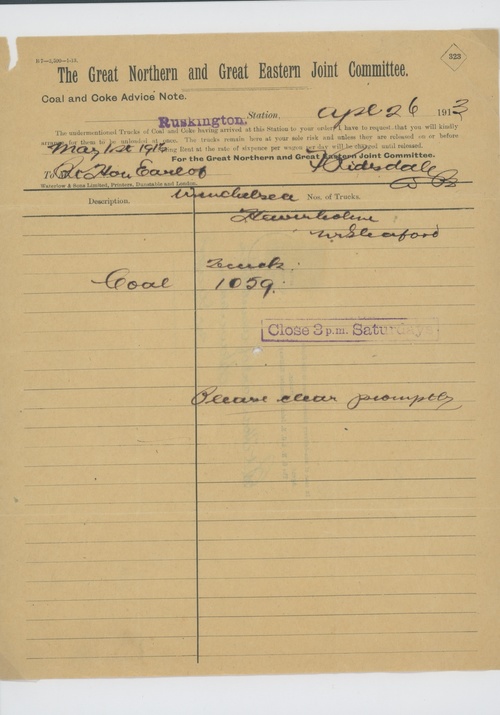 323
The Great Northern and Great Eastern Joint Committee.
Coal and Coke Advice Note.
Ruskington. Station, Apl 26 1913
The undermentioned Trucks of Coal and Coke having arrived at this Station to your order, I have to request that you will kindly
arrange for them to be unloaded at once. The trucks remain here at your sole risk and unless they are released on or before
May 1st 1913 Rent at the rate of sixpence per wagon per day will be charged until released.
For the Great Northern and Great Eastern Joint Committee.
To Rt Hon Earl of
Waterlow & Sons Limited, Printers, Dunstable and London.
Winchelsea
Description. Nos. of Trucks.
Haverholme
Nr Sleaford
Truck
Coal 1059.
Close 3 p.m. Saturdays
Please clear promptly